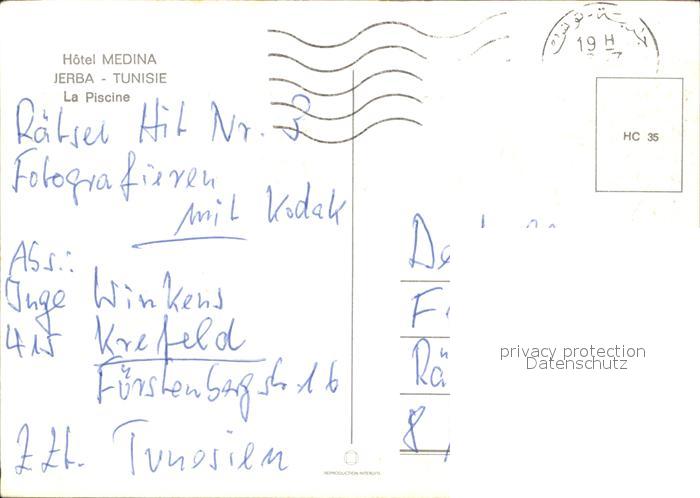 Hôtel MEDINA
JERBA - TUNISIE
La Piscine
Rätsel Hit Nr. 3
Fotografieren
mit Kodak
Abs.:
Inge Winkens
415 Krefeld
Fürstenbergstr. 16
z. Zt. Tunesien
19 H
HC 35
Rä
8
privacy protection
Datenschutz
REPRODUCTION INTERDITE